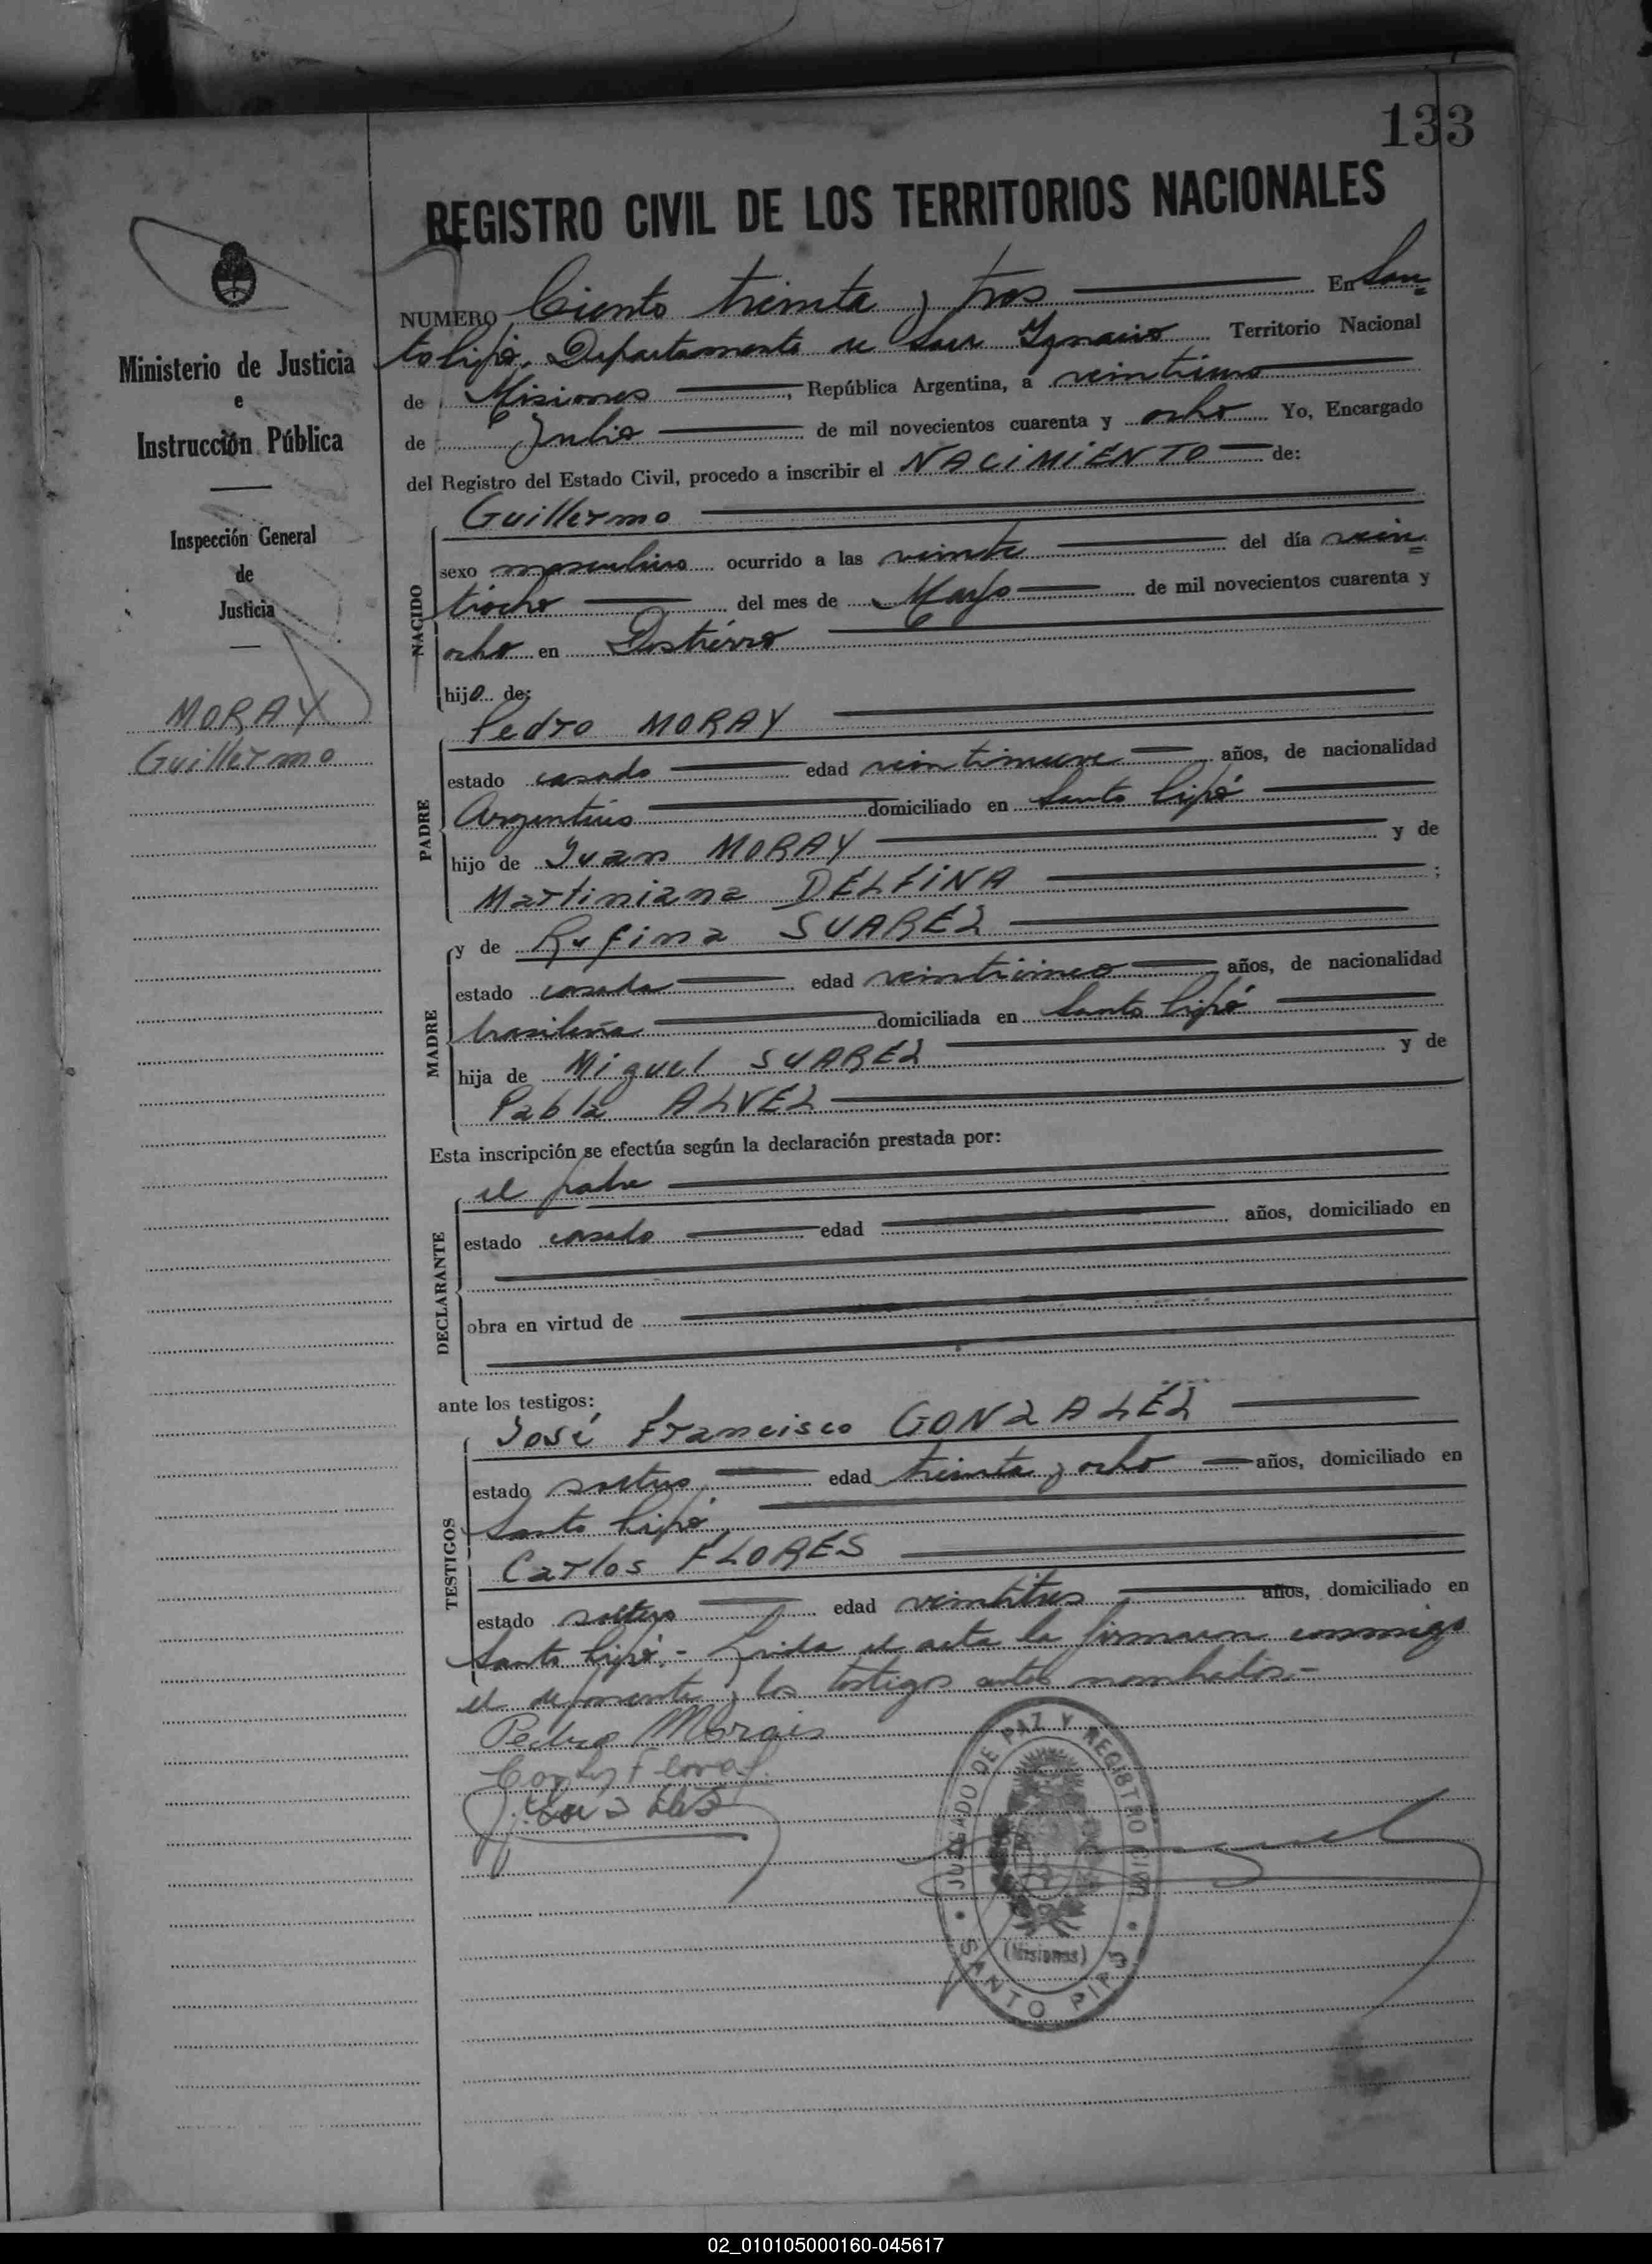 133
REGISTRO CIVIL DE LOS TERRITORIOS NACIONALES
NUMERO Ciento treinta y tres En San
to Pipó, Departamento de San Ignacio Territorio Nacional
de Misiones, República Argentina, a veintiuno
de Julio de mil novecientos cuarenta y ocho Yo, Encargado
del Registro del Estado Civil, procedo a inscribir el NACIMIENTO de:
Ministerio de Justicia
e
Instrucción Pública
Inspección General
de
Justicia
MORAY
Guillermo
NACIDO
Guillermo
sexo masculino ocurrido a las veinte del día vein
tiocho del mes de Mayo de mil novecientos cuarenta y
ocho en Destierro
hijo de:
PADRE
Pedro MORAY
estado casado edad veintinueve años, de nacionalidad
Argentino domiciliado en Santo Pipó
hijo de Juan MORAY y de
Martiniana DELFINA ;
MADRE
y de Rufina SUAREZ
estado casada edad veinticinco años, de nacionalidad
brasileña domiciliada en Santo Pipó
hija de Miguel SUAREZ y de
Pabla ALVEZ
Esta inscripción se efectúa según la declaración prestada por:
DECLARANTE
el padre
estado casado edad años, domiciliado en
obra en virtud de
ante los testigos:
TESTIGOS
José Francisco GONZALEZ
estado soltero edad treinta y ocho años, domiciliado en
Santo Pipó
Carlos FLORES
estado soltero edad veintitres años, domiciliado en
Santo Pipó.- Leida el acta la firman conmigo
el deponente y los testigos antes nombrados.-
Pedro Morais
JUZGADO DE PAZ Y REGISTRO CIVIL
(Misiones)
SANTO PIPÓ
02_010105000160-045617